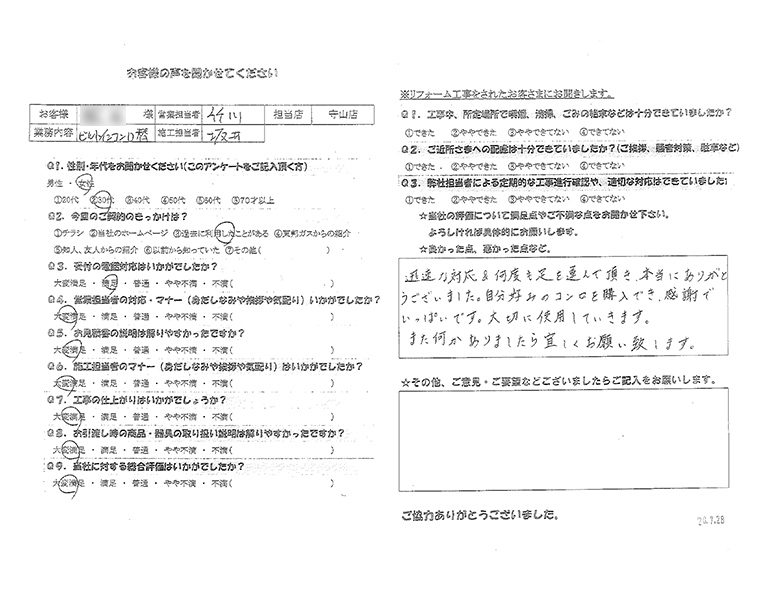 お客様の声を聞かせてください
お客様 様 営業担当者 竹川 担当店 守山店
業務内容 ビルトインコンロ替 施工担当者
Q1. 性別・年代をお聞かせください(このアンケートをご記入頂く方)
男性 ・ 女性
①20代 ②30代 ③40代 ④50代 ⑤60代 ⑥70才以上
Q2. 今回のご契約のきっかけは?
①チラシ ②当社のホームページ ③過去に利用したことがある ④賀邦ガスからの紹介
⑤知人、友人からの紹介 ⑥以前から知っていた ⑦その他( )
Q3. 受付の電話対応はいかがでしたか?
大変満足 ・ 満足 ・ 普通 ・ やや不満 ・ 不満( )
Q4. 営業担当者の対応・マナー(身だしなみや挨拶や気配り)いかがでしたか?
大変満足 ・ 満足 ・ 普通 ・ やや不満 ・ 不満( )
Q5. お見積書の説明は解りやすかったですか?
大変満足 ・ 満足 ・ 普通 ・ やや不満 ・ 不満( )
Q6. 施工担当者のマナー(身だしなみや挨拶や気配り)はいかがでしたか?
大変満足 ・ 満足 ・ 普通 ・ やや不満 ・ 不満( )
Q7. 工事の仕上がりはいかがでしょうか?
大変満足 ・ 満足 ・ 普通 ・ やや不満 ・ 不満( )
Q8. お引渡し時の商品・器具の取り扱い説明は解りやすかったですか?
大変満足 ・ 満足 ・ 普通 ・ やや不満 ・ 不満( )
Q9. 当社に対する総合評価はいかがでしたか?
大変満足 ・ 満足 ・ 普通 ・ やや不満 ・ 不満( )
※リフォーム工事をされたお客さまにお聞きします。
Q1. 工事中、所定場所で喫煙、清掃、ごみの始末などは十分できていましたか?
①できた ②ややできた ③ややできてない ④できてない
Q2. ご近所さまへの配慮は十分できていましたか?(ご挨拶、騒音対策、駐車など)
①できた ②ややできた ③ややできてない ④できてない
Q3. 弊社担当者による定期的な工事進行確認や、適切な対応はできていました
①できた ②ややできた ③ややできてない ④できてない
☆当社の評価について満足点やご不満な点をお聞かせ下さい。
よろしければ具体的にお願いします。
☆良かった点、悪かった点など。
迅速な対応&何度も足を運んで頂き、本当にありがと
うございました。自分好みのコンロを購入でき、感謝で
いっぱいです。大切に使用していきます。
また何かありましたら宜しくお願い致します。
☆その他、ご意見・ご要望などございましたらご記入をお願いします。
ご協力ありがとうございました。
20.7.28